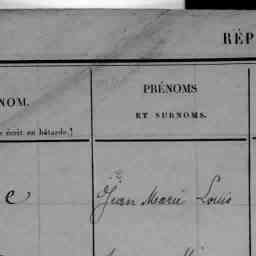 RÉP
NOM.
PRÉNOMS
écrit en bâtarde.)
ET SURNOMS.
c
Jean Marie Louis